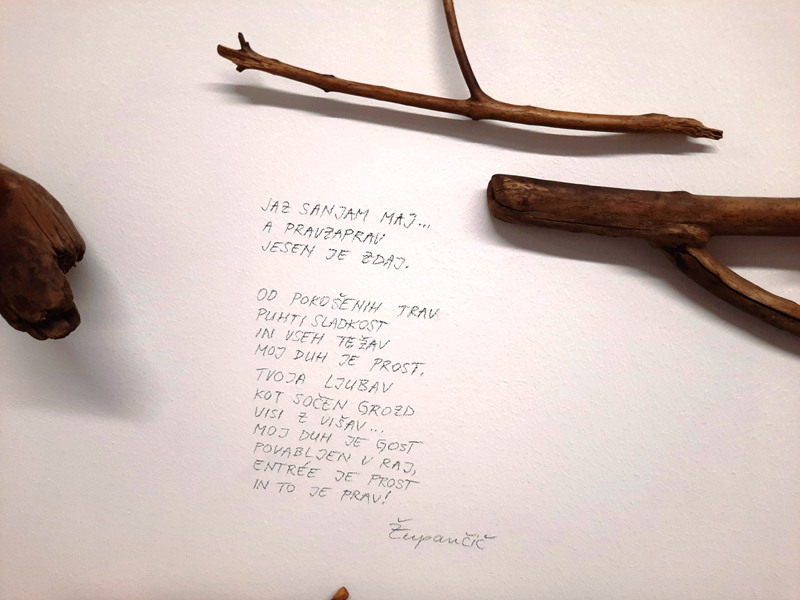 JAZ SANJAM MAJ...
A PRAVZAPRAV
JESEN JE ZDAJ.
OD POKOŠENIH TRAV
PUHTI SLADKOST
IN VSEH TEŽAV
MOJ DUH JE PROST,
TVOJA LJUBAV
KOT SOČEN GROZD
VISI Z VIŠAV...
MOJ DUH JE GOST
POVABLJEN V RAJ,
ENTRÉE JE PROST
IN TO JE PRAV!
Župančič